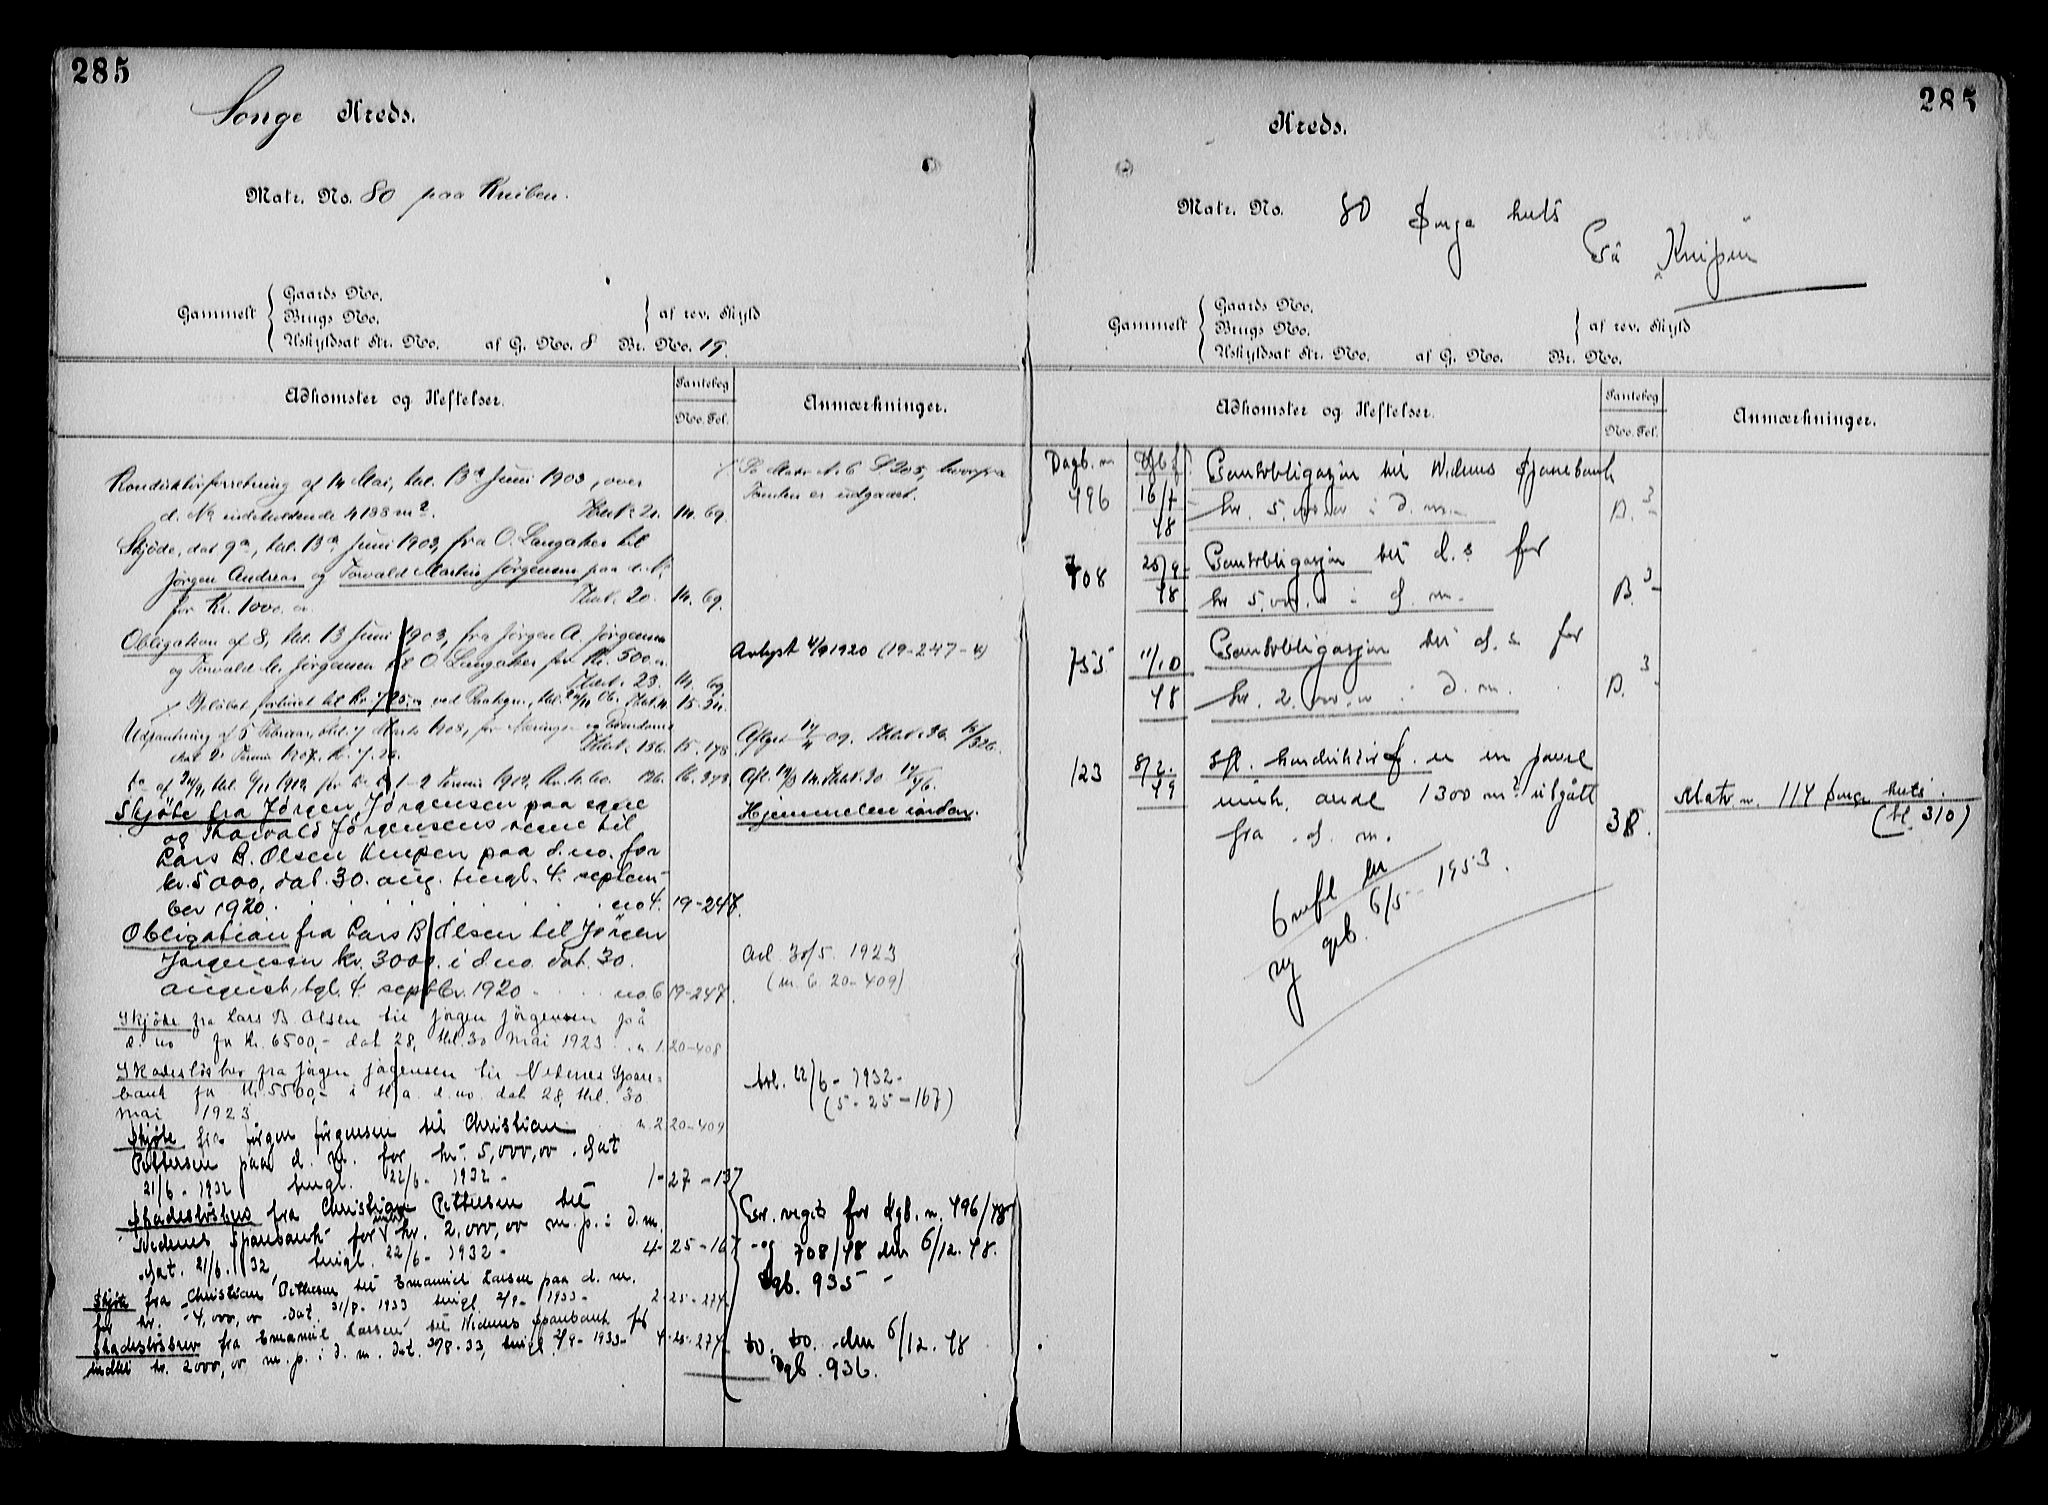 285
Songe Kreds.
Matr. No. 80 paa Kniben.
Gammelt
Gaards No.
Brugs No.
Uskyldsat Str. No. af G. No. 8 Br. No. 19.
af rev. Skyld
Adkomster og Heftelser.
Pantebog
No. Fol.
Anmærkninger.
Konduktörforretning af 14 Mai, thl. 13de Juni 1903, over
d. No indeholdende 4188 m2. Extrt. 21. 14. 69.
Se Matr. N. 6 S 205, hvorfra
Tomten er udgaaet.
Skjöde, dat 9de, thl. 13de Juni 1903, fra O. Langaker til
Jørgen Andreas og Torvald Martin Jørgensen paa d. N.
for Kr. 1000.00 Extrt. 20. 14. 69.
Obligation af 8, thl. 13 Juni 1903, fra Jørgen A. Jørgensen
og Torvald M. Jørgensen til O. Langaker for Kr. 500.00
Extrt. 23. 14. 69.
Avlyst 4/9 1920 (19-247-4)
Udpantning af 5 Februar, thl. 7 Marts 1908, for Nærings- og Eiendoms
skat 2 Termin 1907. Kr. 7.20. Extrt. 156. 15. 178
Aflyst 17/4 09. Extrt. 36. 15/326.
Skjøte fra Jørgen Jørgensen paa egne
og Thorvald Jørgensens vegne til
Lars B. Olsen Knipen paa d. no. for
kr. 5000, dat. 30. aug. tingl. 4. septem-
ber 1920. no 4. 19-247.
Hjemmelen i orden.
Obligation fra Lars B. Olsen til Jörgen
Jørgensen kr. 3000. i d. no. dat. 30.
august, tgl. 4. septbr. 1920 no 6 19-247.
Avl. 30/5. 1923
(n. 6 20-409)
Skjöde fra Lars B. Olsen til Jörgen Jörgensen på
d. no for kr. 6500,- dat 28, thl. 30 mai 1923 . n. 1. 20-408
Skadeslösbrev fra Jörgen Jörgensen til Nedenes Spare-
bank for kr. 5500,- i M. a. d. no. dat 28, thl. 30
mai 1923 n. 2. 20-409
Avl. 22/6 - 1932 -
(5-25-167)
Skjøte fra Jörgen Jörgensen til Christian
Pettersen paa d. n. for kr. 5,000,00. Dat
21/6 - 1932 tingl. 22/6 - 1932 - 1-27-137
Skadesløsbrev fra Christian Pettersen til
Nedenes Sparebank for inntil kr. 2.000,00 m. p. i d. n.
Dat. 21/6. 1932, tingl. 22/6 - 1932 - 4-25-167
Skjøte fra Christian Pettersen til Emanuel Larsen paa d. n.
for kr. 4,000,00 Dat. 31/8 - 1933 tingl. 2/9 - 1933 - 2-25-274
Skadesløsbrev fra Emanuel Larsen til Nedenes Sparebank for
inntil kr. 2000,00 m. p. i d. n. Dat. 30/8-33, tingl 2/9 - 1933- 4-25-274
Pr. veget for dgb. n. 496/48
- og 708/48 den 6/12. 48.
Dgb. 935 -
do. do. den 6/12. 48
Dgb. 936.
285
Kreds.
Matr. No. 80 Songe krets
På Knipen
Gammelt
Gaards No.
Brugs No.
Uskyldsat Str. No. af G. No. Br. No.
af rev. Skyld
Adkomster og Heftelser.
Pantebog
No. Fol.
Anmærkninger.
Dagb. n
496 16/7 48 Pantobligasjon til Nedenes Sparebank
kr. 5.000,00 i d. n. B. 3
708 25/9 48 Pantobligasjon til d. s for
kr 5.000.00 i d. n. B. 3
755 11/10 48 Pantobligasjon til d. s for
kr. 2.000.00 i d. n. B. 3
123 8/2. 49 Afl. konduktørf. over en parsel
innh. areal 1300 m2 utgått
fra d. n. 38.
Matr n. 114 Songe krets.
(bl. 310)
Omført til
ny grb. 6/5 - 1953.